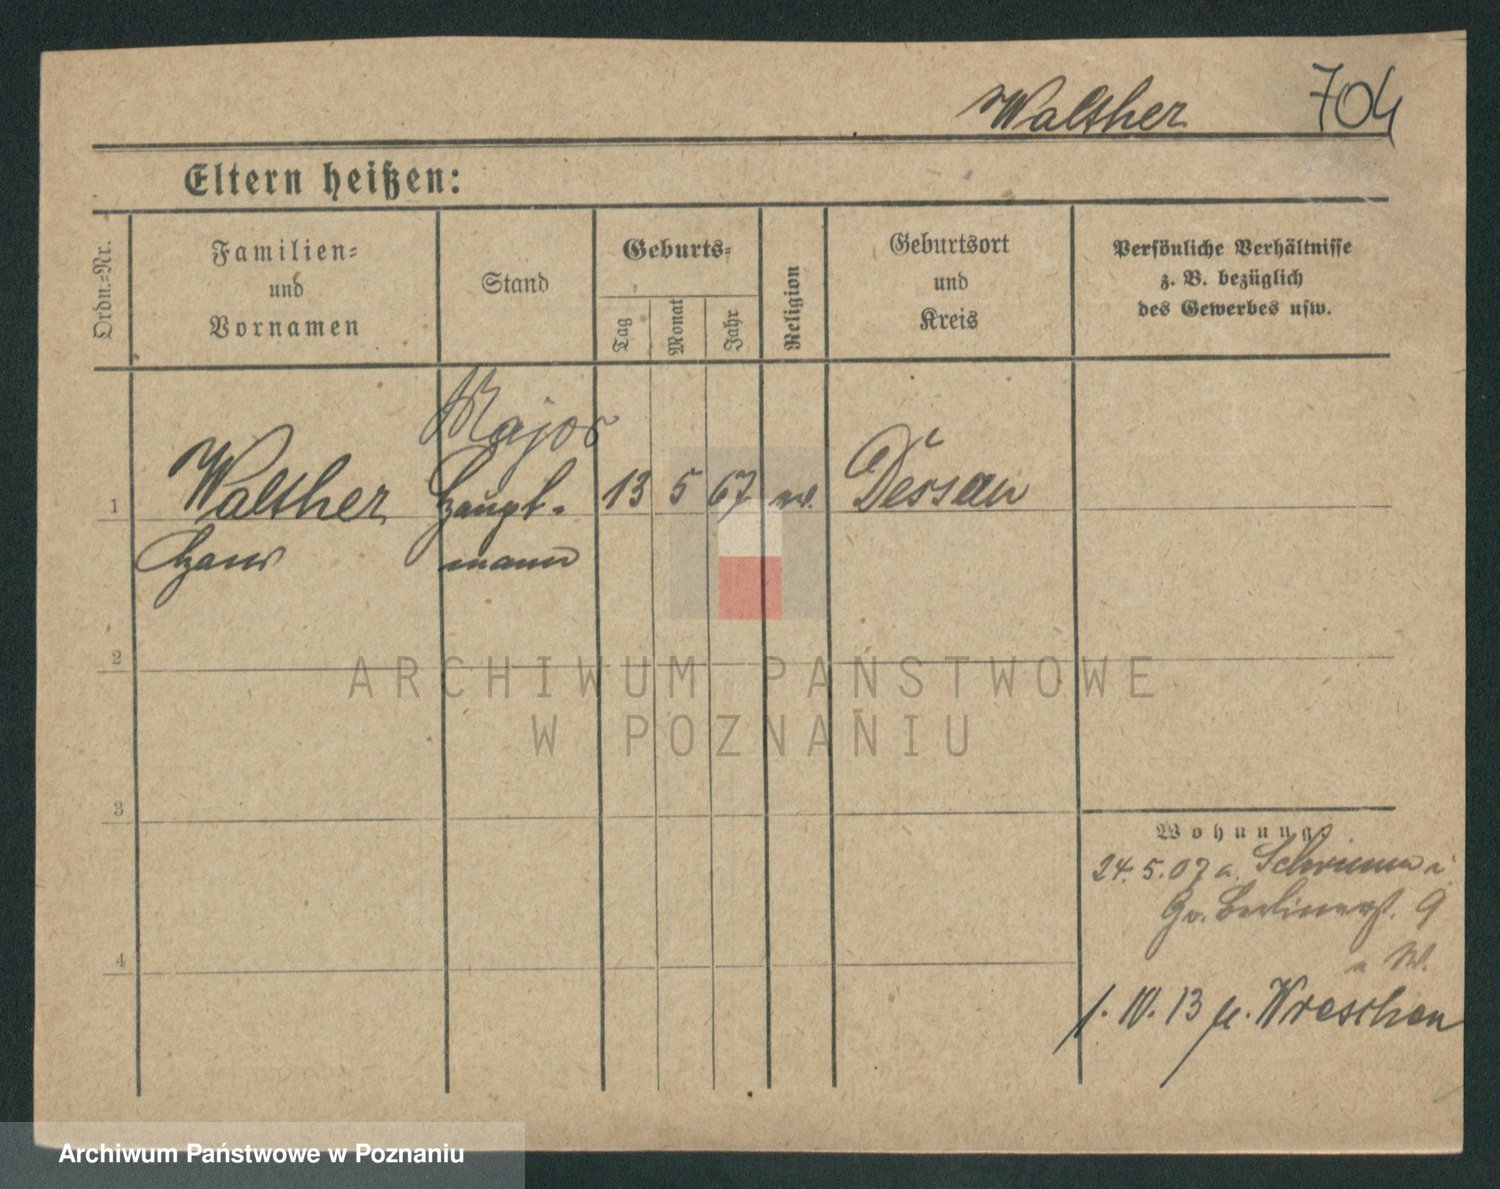 Walther 704
Eltern heißen:
Ordn.-Nr.
Familien-
und
Vornamen
Stand
Geburts-
Tag
Monat
Jahr
Religion
Geburtsort
und
Kreis
Persönliche Verhältnisse
z. B. bezüglich
des Gewerbes usw.
Major
1 Walther Haupt- 13 5 67 Dessau
Hans mann
2
ARCHIWUM PAŃSTWOWE
W POZNANIU
3
Wohnung:
24. 5. 07 a. Schrimm
Berlinerst. 9
4
1. 10. 13 Wreschen
Archiwum Państwowe w Poznaniu